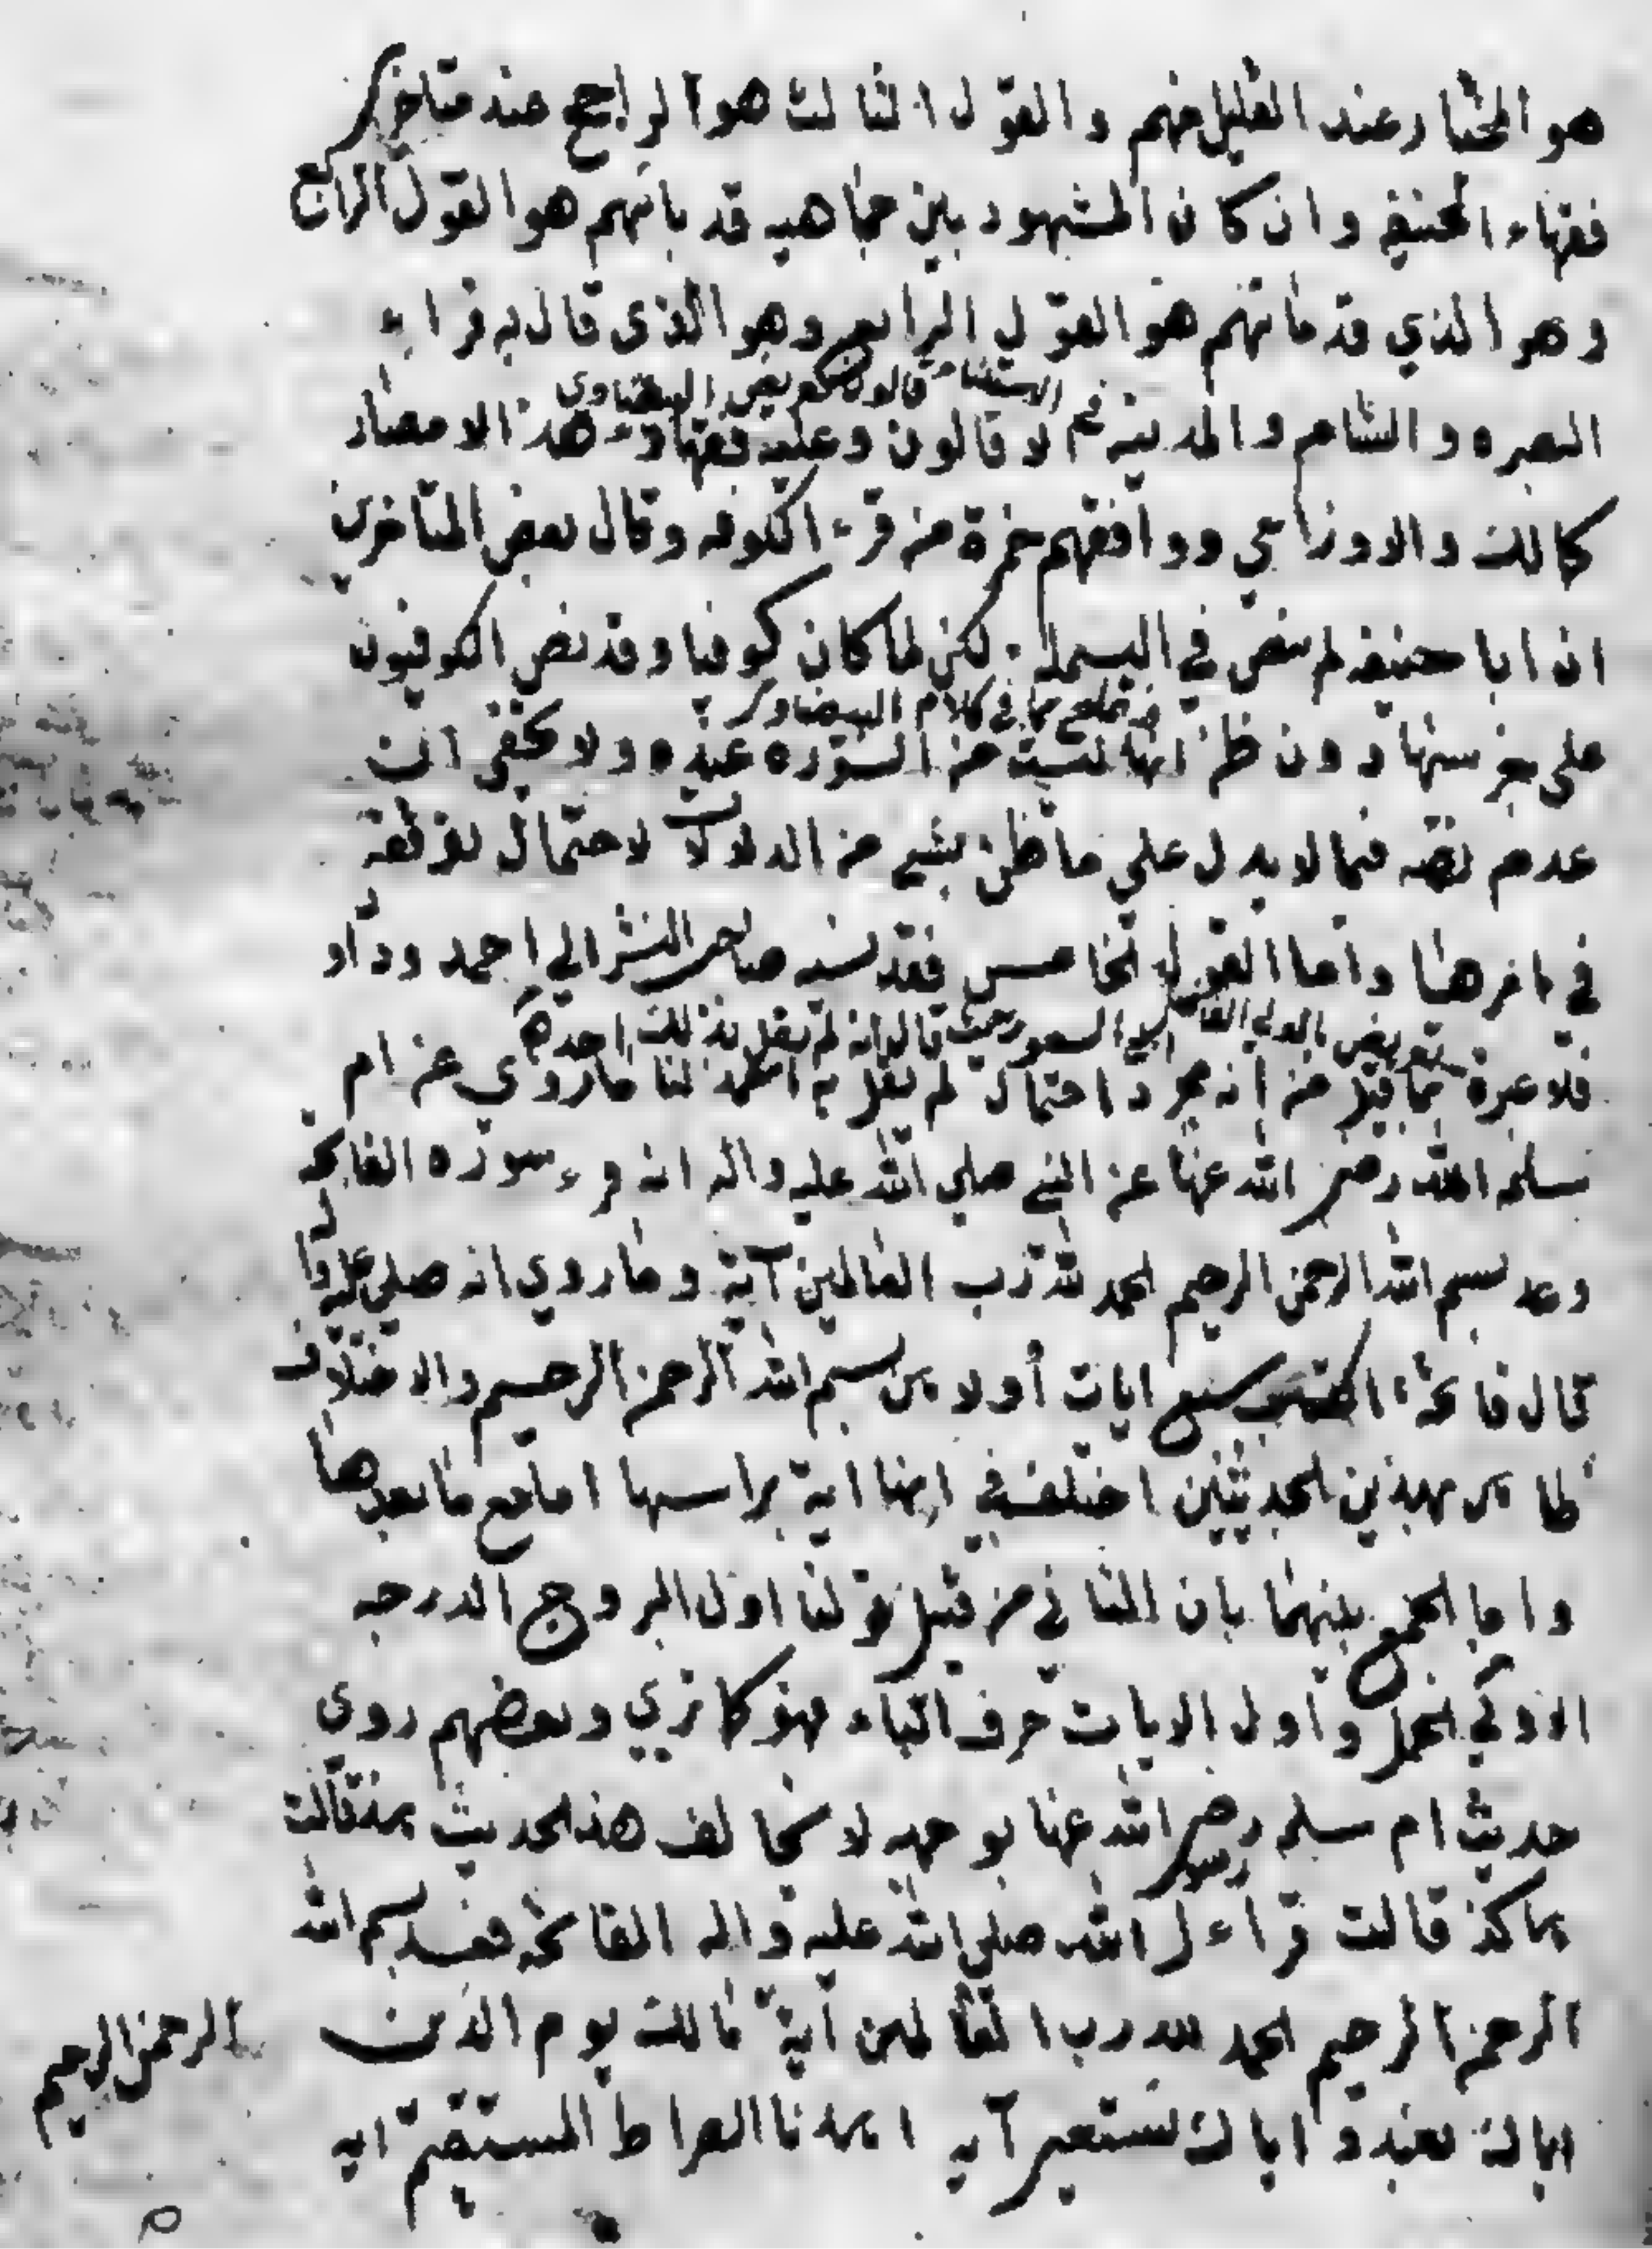 هو المختار عند القليل منهم والقول الثالث هو الراجح عند متاخري
فقهاء الحنفية وان كان المشهور بين جماهير قدمائهم هو القول الرابع
وهو الذي قدمائهم هو القول الرابع وهو الذي قال به قراء
الاستثناء قالون تعريض البيضاوي
البصره والشام والمدينة الا قالون وعليه فقهاء هذه الامصار
كمالك والاوزاعي ووافقهم حمزة من قرء الكوفه وقال بعض المتاخرين
ان ابا حنيفه لم ينص في البسملة لكن لما كان كوفيا وقد نص الكوفيون
فيه تلميح بما في كلام البيضاوي
على بعضيتها دون ظن انها ليست من السورة عنده ولا يخفى ان
عدم نصه فيها لا يدل على ما ظن بشئ من الدلالات لاحتمال توقفه
في امرها واما القول الخامس فقد نسبه صاحب النشر الى احمد وداود
تعريض المولى ابي السعود حيث قال انه لم يقل بذلك احد
فلا عبرة بما قيل من انه مجرد احتمال لم يقل به احد لنا ما روي عن ام
سلمه رضي الله عنها عن النبي صلى الله عليه واله انه قرء سورة الفاتحة
وعد بسم الله الرحمن الرحيم الحمد لله رب العالمين آية وما روي انه صلى عليه واله
قال فاتحة الكتب سبع ايات أولاهن بسم الله الرحمن الرحيم والاختلاف
بهذين الحديثين اختلف في انها اية براسها ام مع ما بعدها
واما الجمع بينهما بان الثاني من قبيل قولنا اول البروج الدرجه
الاولى الحمل واول الايات حرف الباء فهو كما ترى وبعضهم روى
حديث ام سلمه رضي الله عنها بوجه لا يخالف هذ الحديث
هكذا قالت قراء رسول الله صلى الله عليه واله الفاتحه فعد بسم الله
الرحمن الرحيم الحمد لله رب العالمين آية مالك يوم الدين
الرحمن الرحيم
اياك نعبد واياك نستعين آيه اهدنا الصراط المستقيم ايه